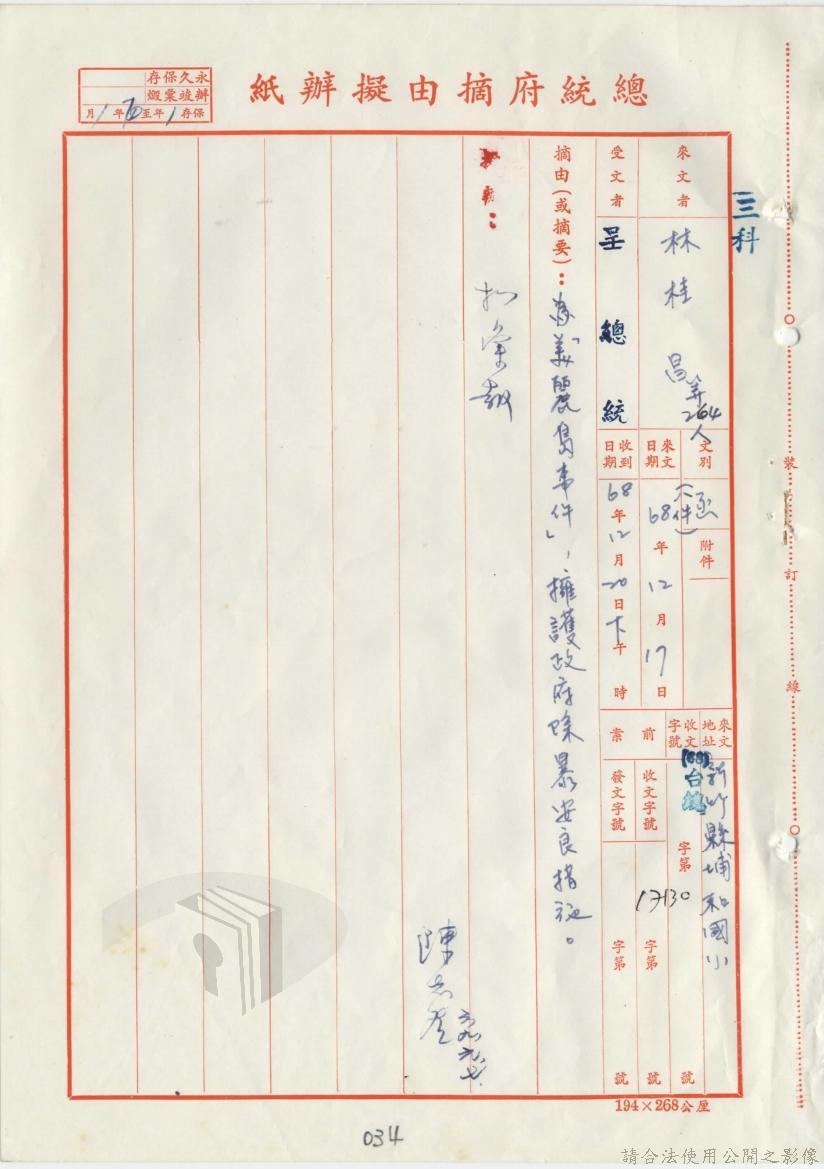 總統府摘由擬辦紙
永久保存
辦竣彙燬
保存1年至 年1月
三科
來文者
林桂昌等264人
受文者
呈 總統
文別
函(六件)
附件
來文日期
68年12月17日
收到日期
68年12月20日下午 時
來文地址
新竹縣埔和國小
收文字號
(68)台 字第 17130 號
前案
收文字號
字第 號
發文字號
字第 號
摘由(或摘要):為「美麗島事件」,擁護政府除暴安良措施。
擬辦:
陳
裝 訂 線
194×268公厘
034
請合法使用公開之影像